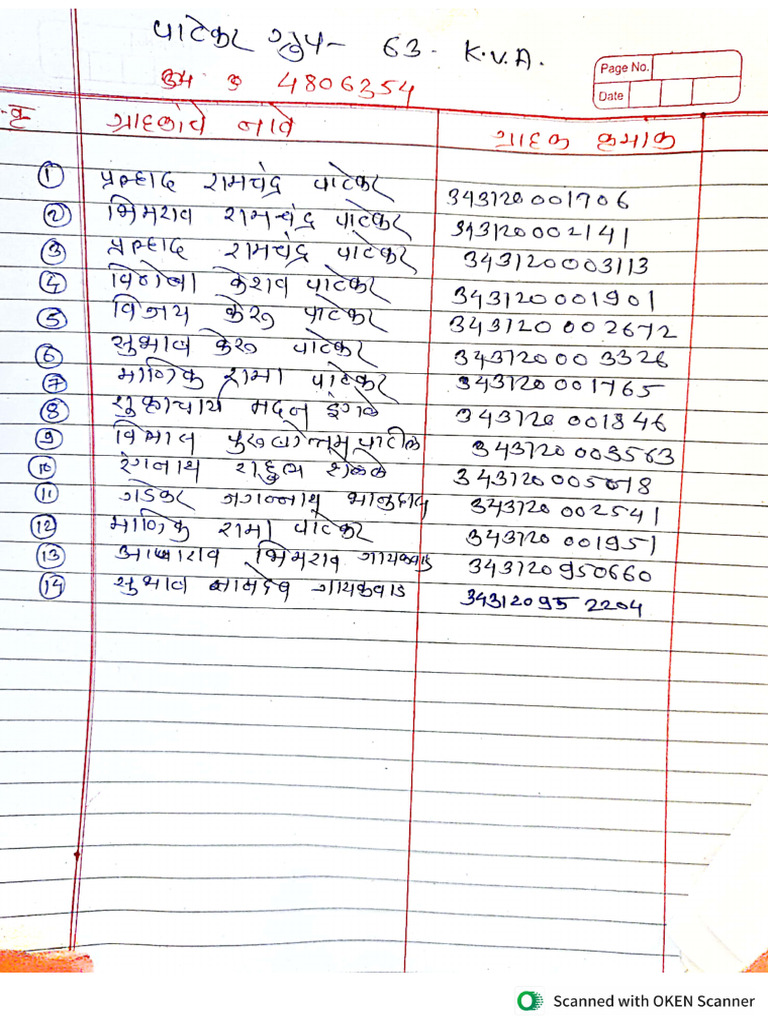 पाटेकर ग्रुप - 63 - K.V.A.
Page No.
Date
4806354
ग्राहकांचे नांवे ग्राहक क्रमांक
① प्रल्हाद रामचंद्र पाटेकर 343120001706
② भिमराव रामचंद्र पाटेकर 343120002141
③ प्रल्हाद रामचंद्र पाटेकर 343120003113
④ विठोबा केशव पाटेकर 343120001901
⑤ विजय केरू पाटेकर 343120002672
⑥ सुभाष केरू पाटेकर 343120003326
⑦ माणिक रामा पाटेकर 343120001765
⑧ शुक्राचार्य मदन इंगळे 343120001846
⑨ पुरुषोत्तम पाटील 343120003563
⑩ रंगनाथ राहुल शेळके
⑪ गडेकर जगन्नाथ भानुदास 343120002541
⑫ माणिक रामा पाटेकर 343120001951
⑬ आप्पाराव भिमराव गायकवाड 343120950660
⑭ सुभाष नामदेव गायकवाड 343120952204
Scanned with OKEN Scanner